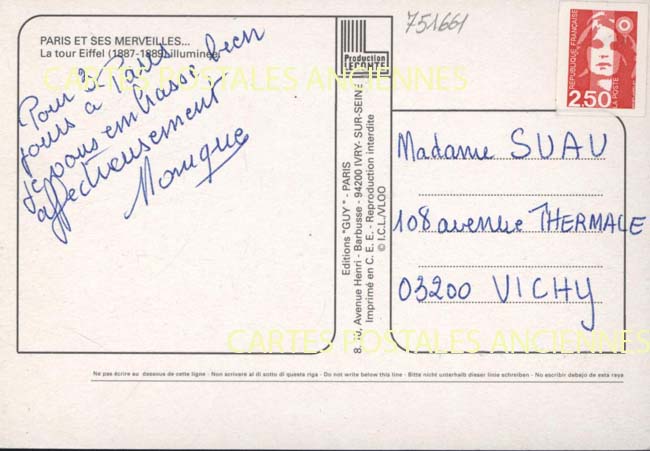 PARIS ET SES MERVEILLES...
La tour Eiffel (1887-1889) illuminée
Pour 3
jours à Paris
je vous embrasse bien
affectueusement
Monique
CARTES POSTALES ANCIENNES
Production
LECONTE
751661
RÉPUBLIQUE FRANÇAISE
2,50
LA POSTE
Editions "GUY" - PARIS
8. 10, Avenue Henri - Barbusse - 94200 IVRY- SUR-SEINE
Imprimé en C. E. E. - Reproduction interdite
© I.C.L/VLOO
Madame SUAU
108 avenue THERMALE
03200 VICHY
CARTES POSTALES ANCIENNES
Ne pas écrire au dessous de cette ligne - Non scrivere al di sotto di questa riga - Do not write below this line - Bitte nicht unterhalb dieser linie schreiben - No escribir debajo de esta raya